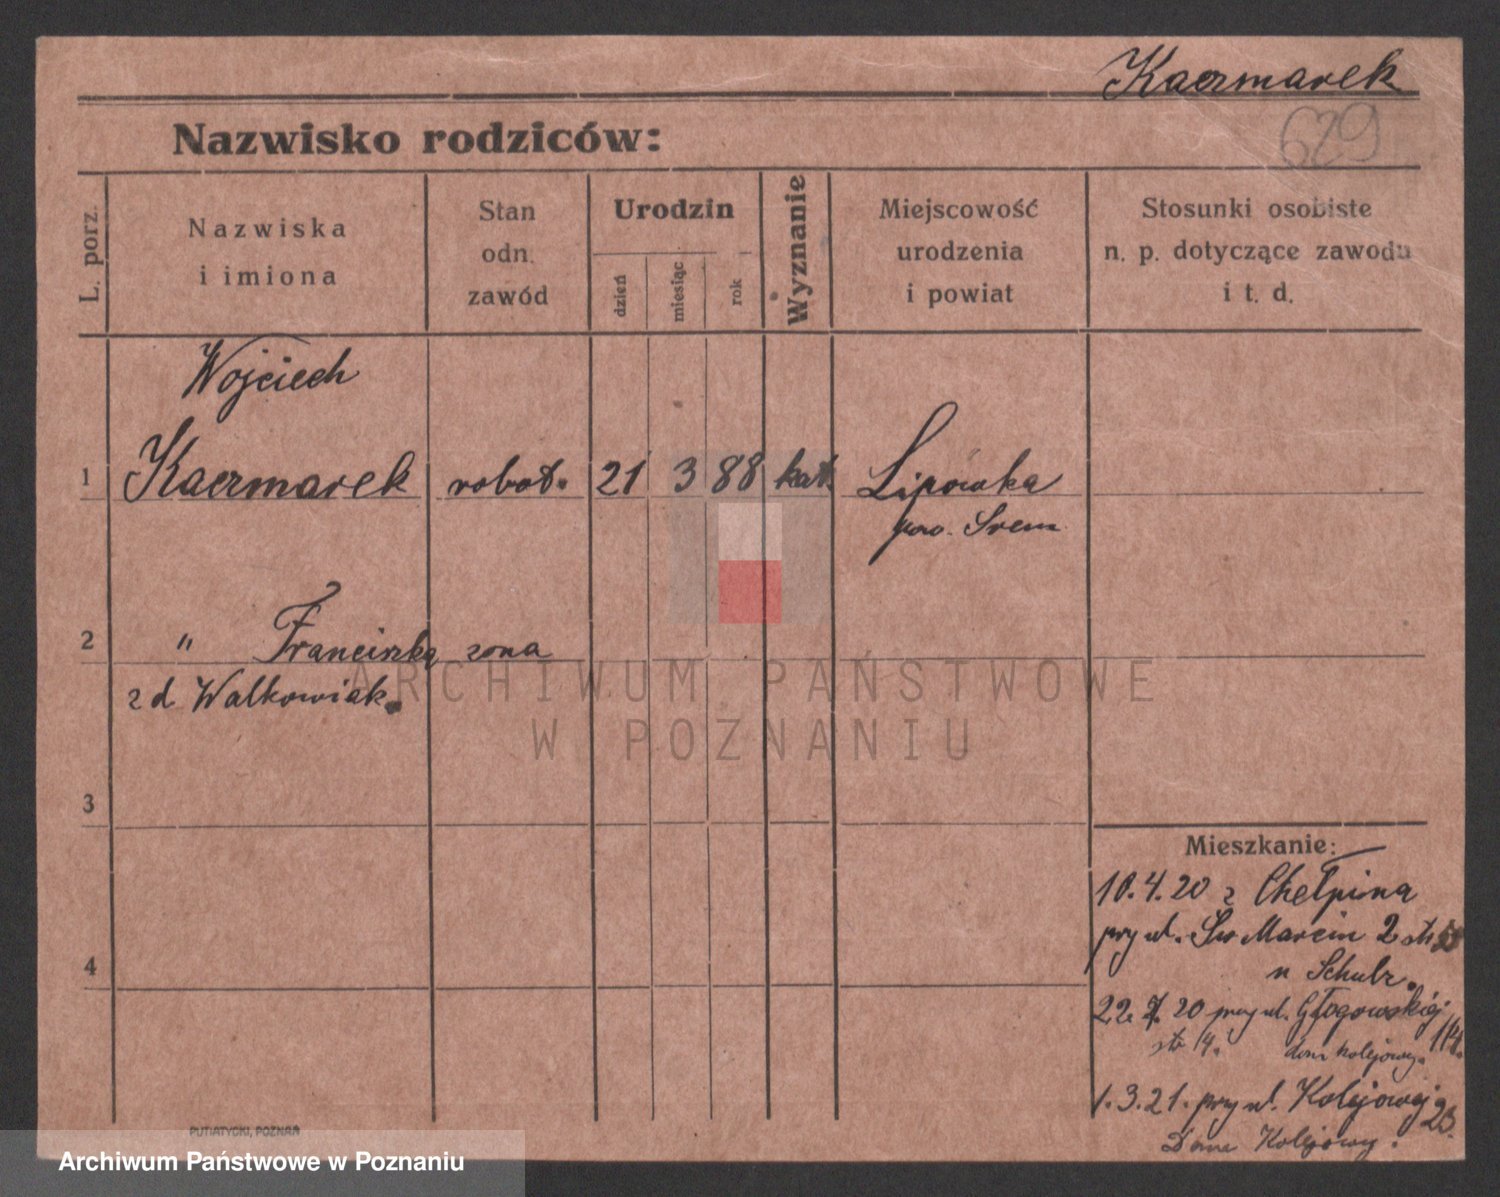 Kaczmarek
629
Nazwisko rodziców:
L. porz.
Nazwiska
i imiona
Stan
odn.
zawód
Urodzin
dzień
miesiąc
rok
Wyznanie
Miejscowość
urodzenia
i powiat
Stosunki osobiste
n. p. dotyczące zawodu
i t. d.
Wojciech
1 Kaczmarek robot. 21 3 88 kat. Lipówka
pow. Srem
2 " Franciszka zona
z d Walkowiak.
3
4
Mieszkanie:
10.4.20 z Chełpina
przy ul. Sw Marcin 2 str
u Schulz.
22. 7. 20 przy ul. Głogowskiej 114.
str 14. dom kolejowy.
1.3.21. przy ul. Kolejowej 23.
Dome Kolejowy.
PUTIATYCKI, POZNAŃ
ARCHIWUM PAŃSTWOWE
W POZNANIU
Archiwum Państwowe w Poznaniu